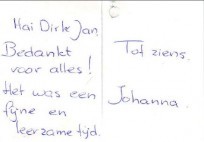 Hai Dirk Jan
Bedankt
voor alles!
Het was een
fijne en
leerzame tijd.
Tot ziens,
Johanna.